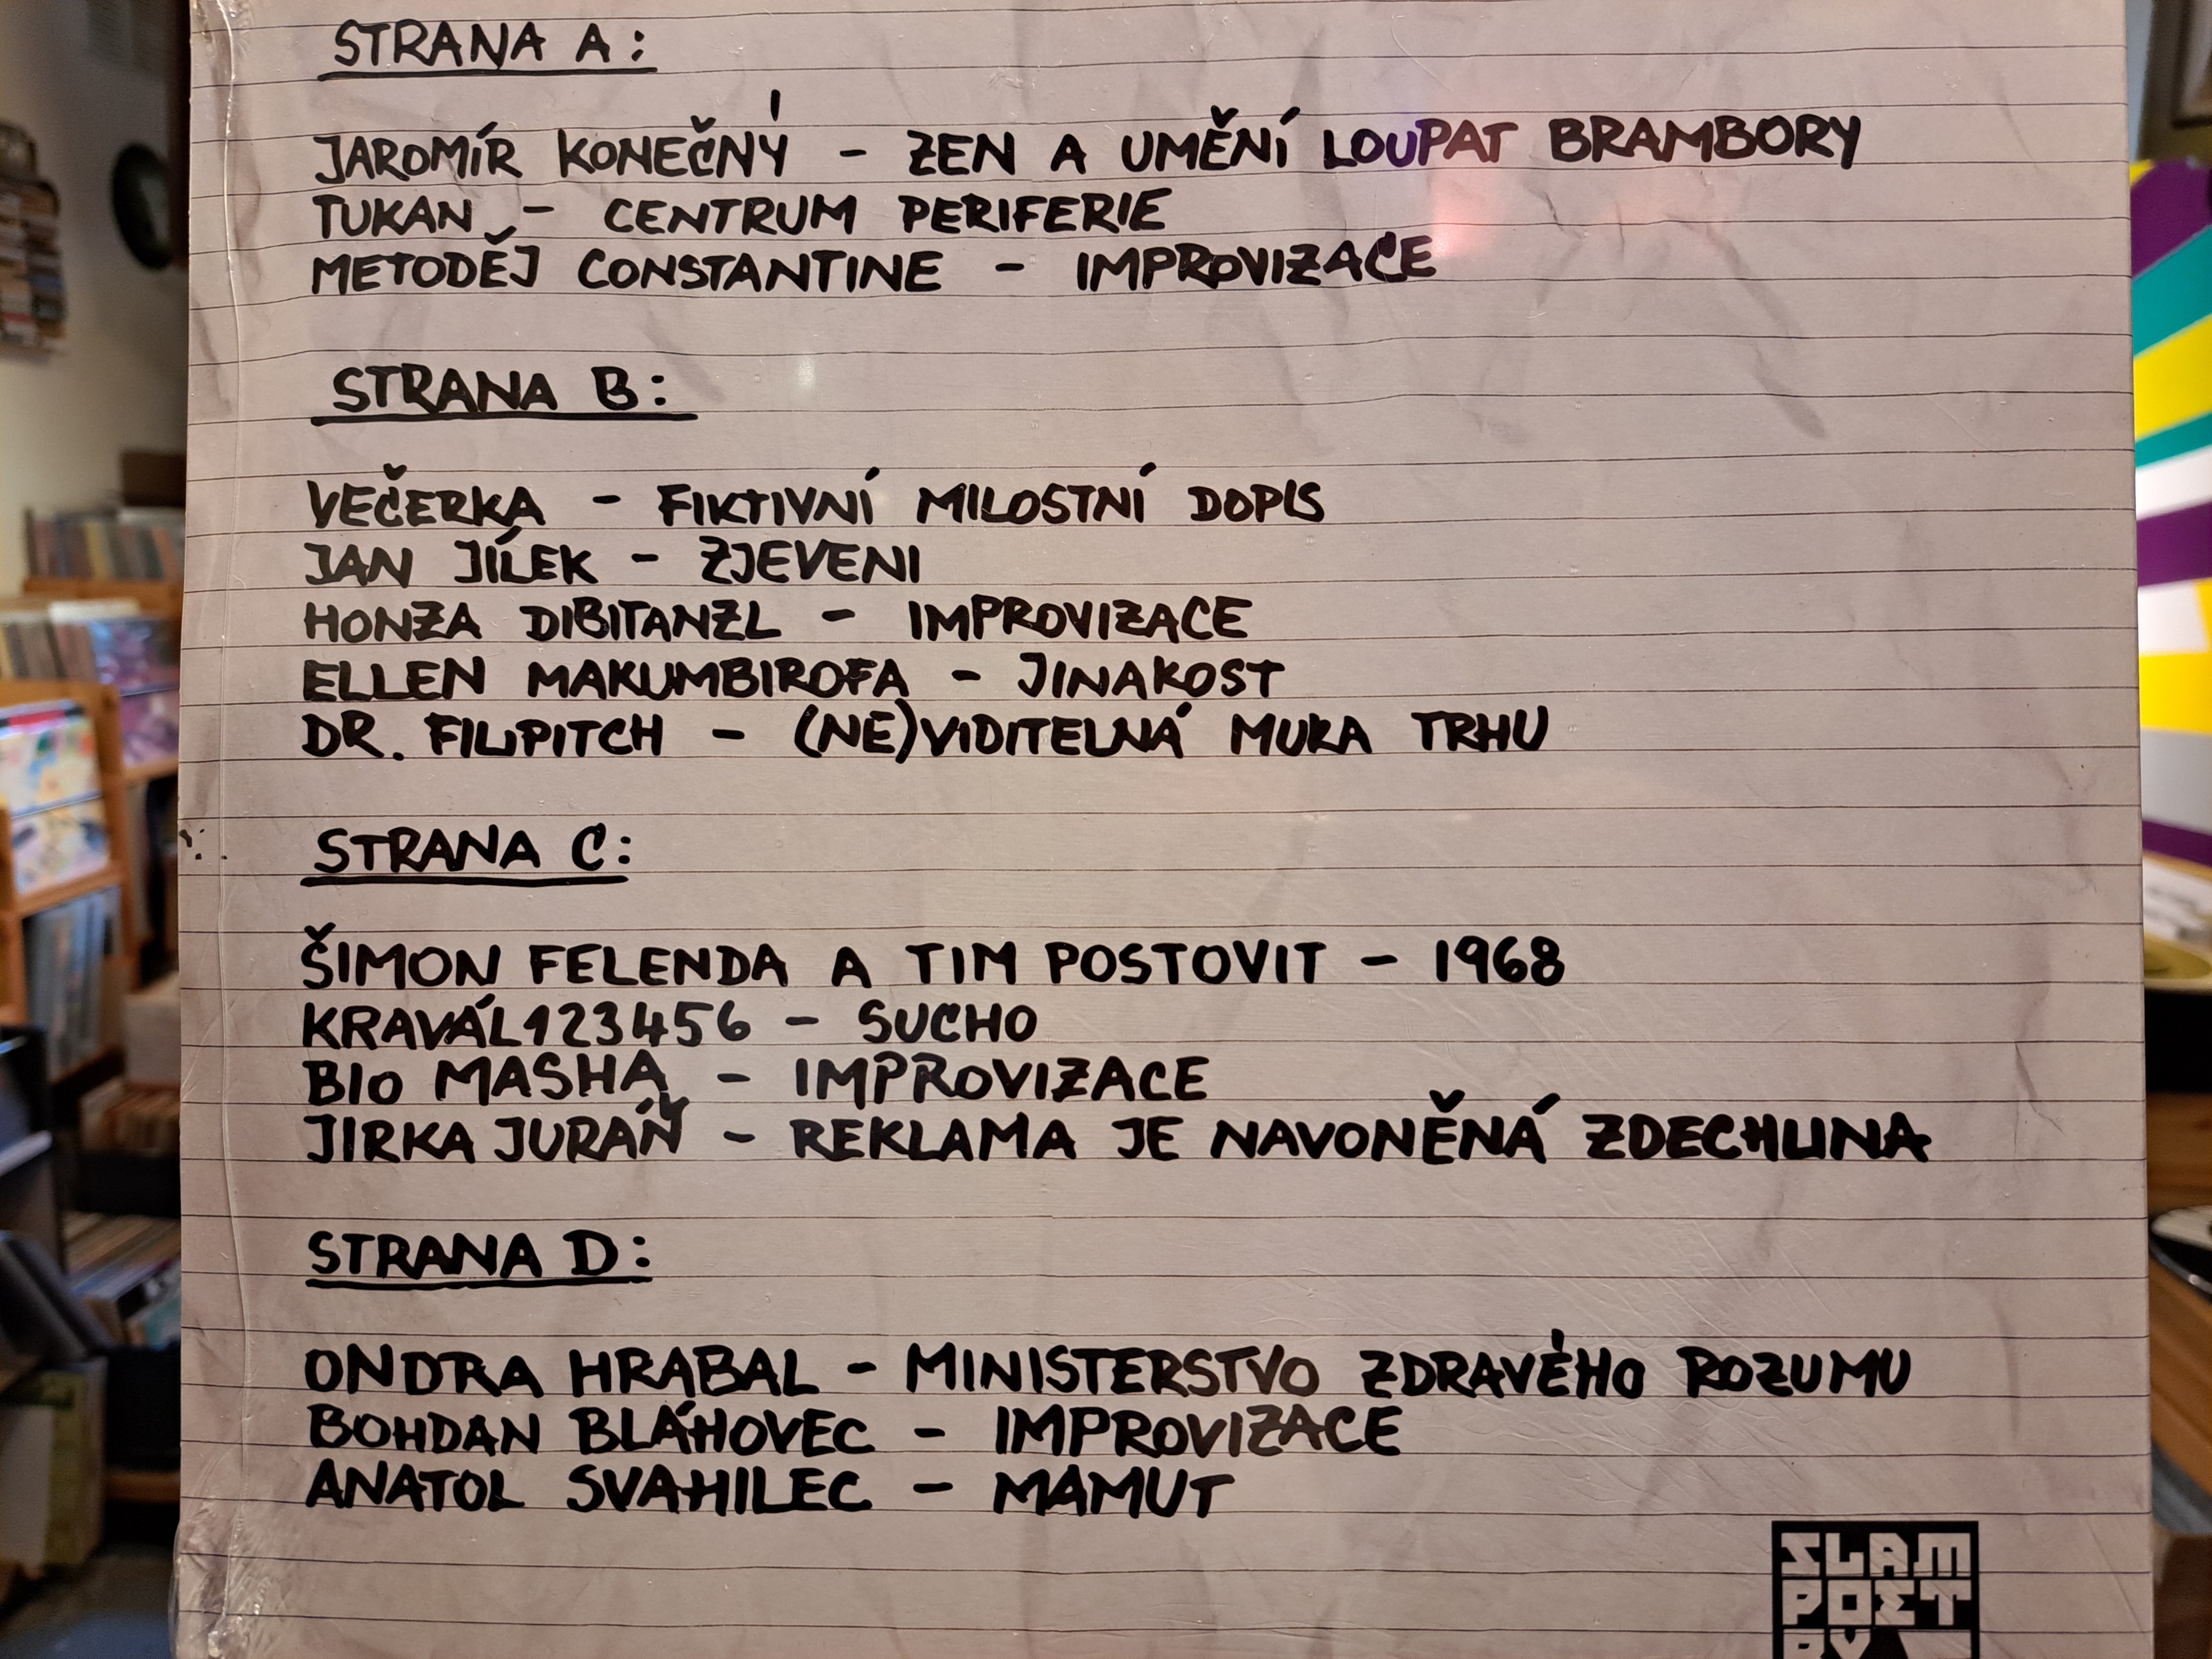 STRANA A:
JAROMÍR KONEČNÝ - ZEN A UMĚNÍ LOUPAT BRAMBORY
TUKAN - CENTRUM PERIFERIE
METODĚJ CONSTANTINE - IMPROVIZACE
STRANA B:
VEČERKA - FIKTIVNÍ MILOSTNÍ DOPIS
JAN JÍLEK - ZJEVENI
HONZA DIBITANZL - IMPROVIZACE
ELLEN MAKUMBIROFA - JINAKOST
DR. FILIPITCH - (NE)VIDITELNÁ MUKA TRHU
STRANA C:
ŠIMON FELENDA A TIM POSTOVIT - 1968
KRAVÁL123456 - SUCHO
BIO MASHA - IMPROVIZACE
JIRKA JURÁŇ - REKLAMA JE NAVONĚNÁ ZDECHLINA
STRANA D:
ONDRA HRABAL - MINISTERSTVO ZDRAVÉHO ROZUMU
BOHDAN BLÁHOVEC - IMPROVIZACE
ANATOL SVAHILEC - MAMUT
SLAM
POET
RY